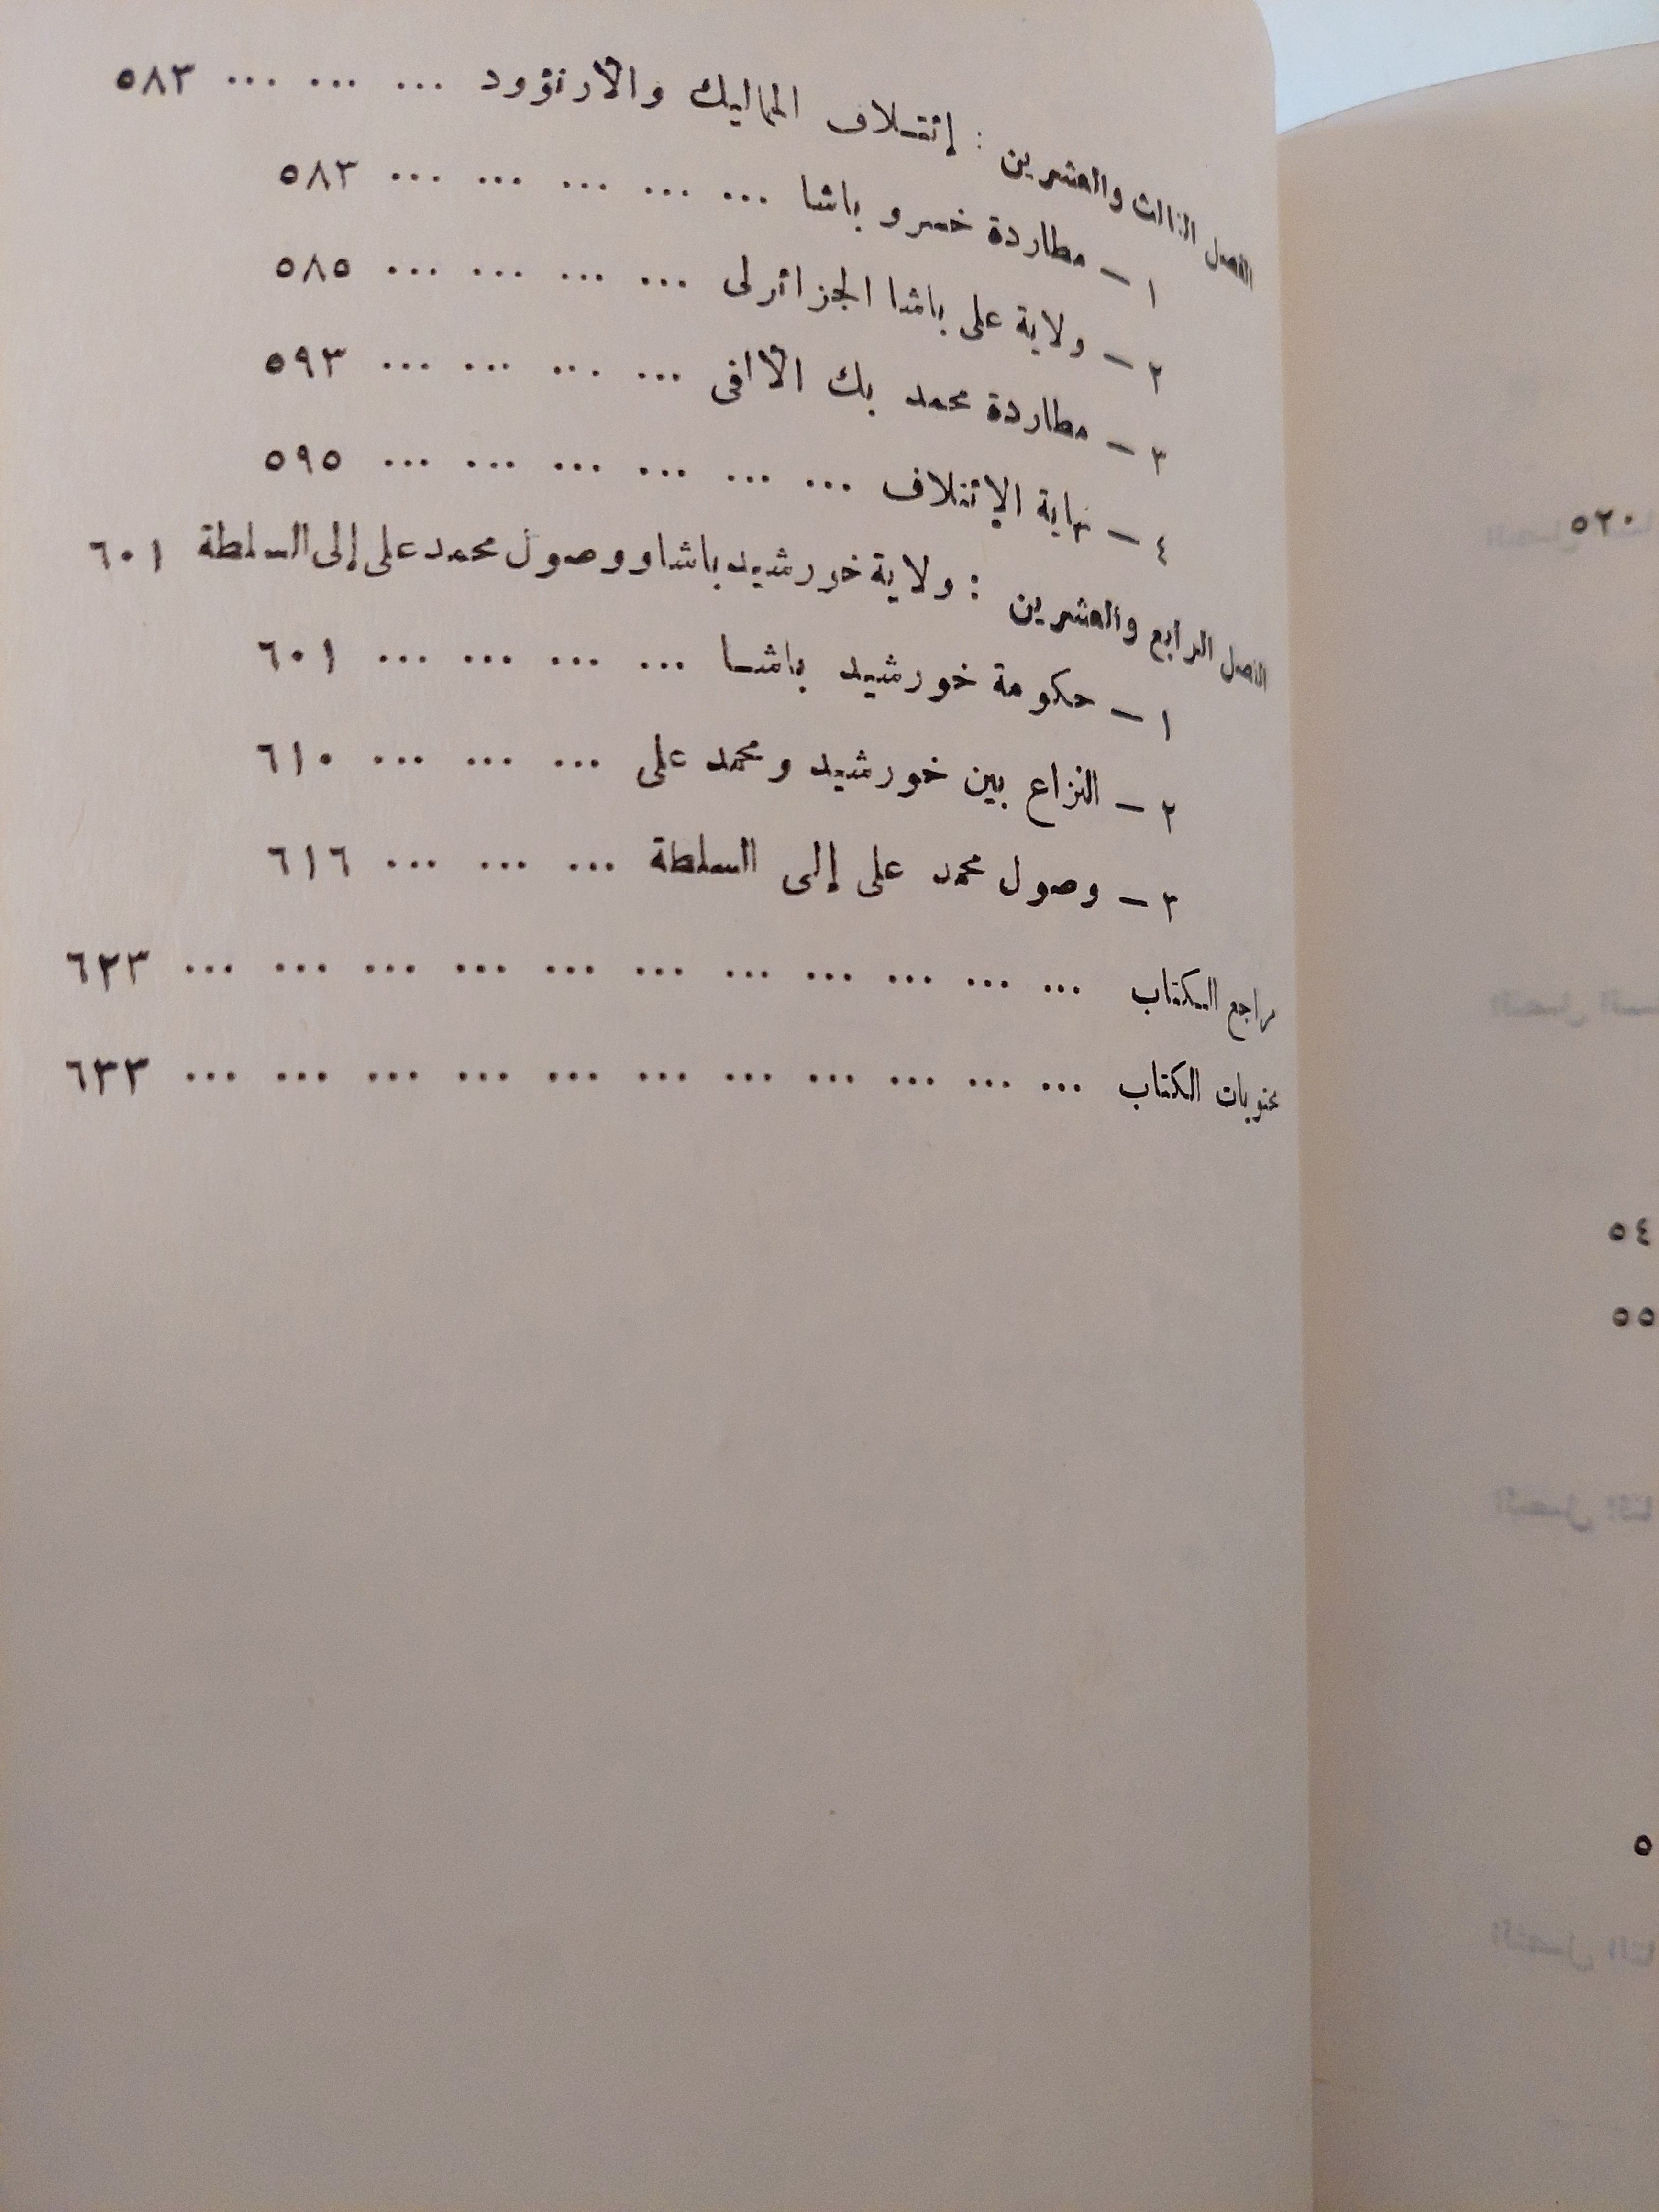 الفصل الثالث والعشرين : إئتلاف المماليك والارنؤود ... ... ... ٥٨٣
١ — مطاردة خسرو باشا ... ... ... ... ... ٥٨٣
٢ — ولاية على باشا الجزائرلى ... ... ... ... ٥٨٥
٣ — مطاردة محمد بك الألفى ... ... ... ... ٥٩٣
٤ — نهاية الإئتلاف ... ... ... ... ... ... ٥٩٥
الفصل الرابع والعشرين : ولاية خورشيد باشا ووصول محمد على إلى السلطة ٦٠١
١ — حكومة خورشيد باشا ... ... ... ... ٦٠١
٢ — النزاع بين خورشيد ومحمد على ... ... ... ٦١٠
٣ — وصول محمد على إلى السلطة ... ... ... ٦١٦
مراجع الكتاب ... ... ... ... ... ... ... ... ... ... ... ٦٢٣
محتويات الكتاب ... ... ... ... ... ... ... ... ... ... ... ٦٣٣
٥٢٠
٥٤
٥٥
٥